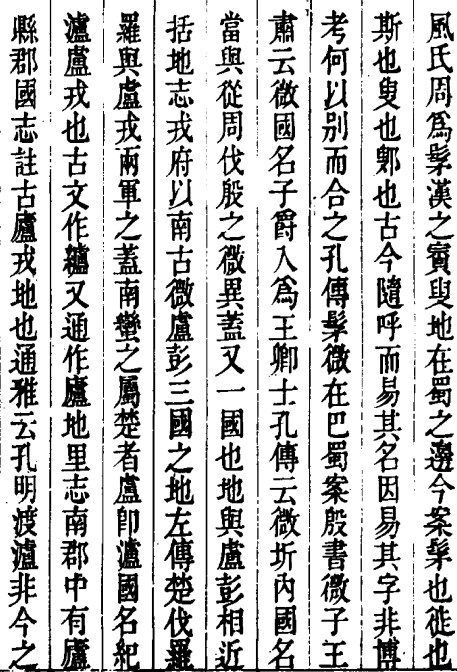 風氏周爲髳漢之賨叟地在蜀之邊今案髳也徙也
斯也叟也鄋也古今隨呼而易其名因易其字非博
考何以别而合之孔傳髳微在巴蜀案殷書微子王
肅云微國名子爵入爲王卿士孔傳云微圻內國名
當與從周伐殷之微異蓋又一國也地與盧彭相近
括地志戎府以南古微盧彭三國之地左傳楚伐羅
羅與盧戎兩軍之蓋南蠻之屬楚者盧卽瀘國名紀
瀘盧戎也古文作纑又通作廬地里志南郡中有廬
縣郡國志註古廬戎地也通雅云孔明渡瀘非今之